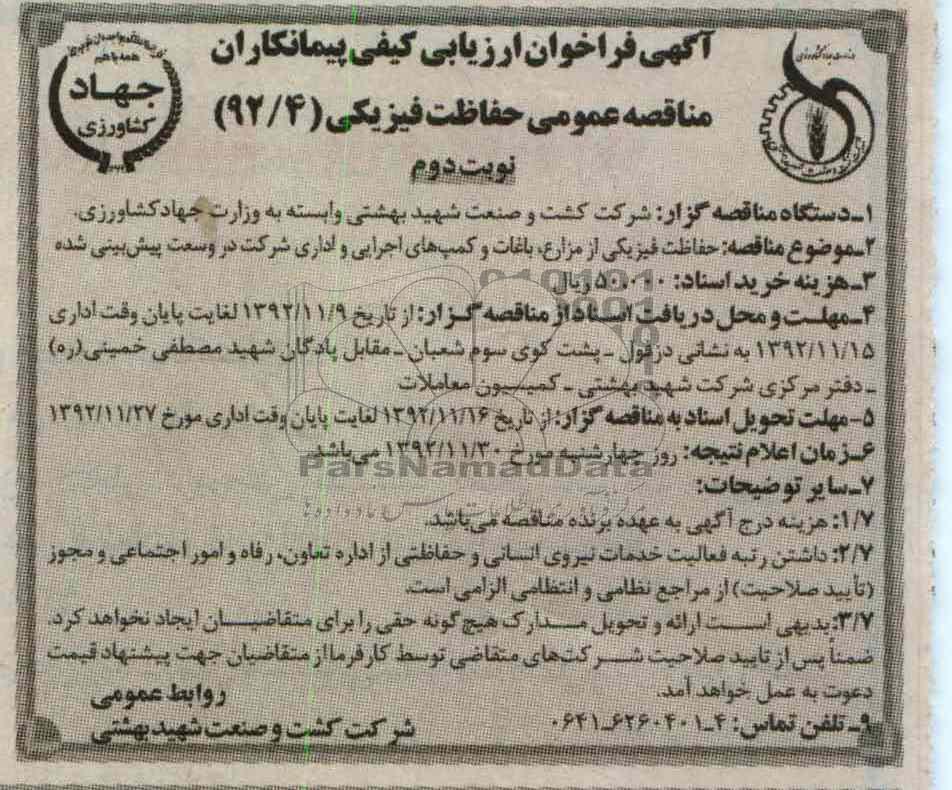 آگهی فراخوان ارزیابی کیفی پیمانکاران
مناقصه عمومی حفاظت فیزیکی (۹۲/۴)
نوبت دوم
همه با هم
جهاد
کشاورزی
۱ـ دستگاه مناقصه گزار: شرکت کشت و صنعت شهید بهشتی وابسته به وزارت جهاد کشاورزی.
۲ـ موضوع مناقصه: حفاظت فیزیکی از مزارع، باغات و کمپ‌های اجرایی و اداری شرکت در وسعت پیش‌بینی شده
۳ـ هزینه خرید اسناد: ۵۰.۰۰۰ ریال
۴ـ مهلت و محل دریافت اسناد از مناقصه گزار: از تاریخ ۱۳۹۲/۱۱/۹ لغایت پایان وقت اداری
۱۳۹۲/۱۱/۱۵ به نشانی دزفول ـ پشت کوی سوم شعبان ـ مقابل پادگان شهید مصطفی خمینی(ره)
ـ دفتر مرکزی شرکت شهید بهشتی ـ کمیسیون معاملات
۵ـ مهلت تحویل اسناد به مناقصه گزار: از تاریخ ۱۳۹۲/۱۱/۱۶ لغایت پایان وقت اداری مورخ ۱۳۹۲/۱۱/۲۷
۶ـ زمان اعلام نتیجه: روز چهارشنبه مورخ ۱۳۹۲/۱۱/۳۰ می‌باشد
ParsNamadData
۷ـ سایر توضیحات:
۱/۷: هزینه درج آگهی به عهده برنده مناقصه می‌باشد.
۲/۷: داشتن رتبه فعالیت خدمات نیروی انسانی و حفاظتی از اداره تعاون، رفاه و امور اجتماعی و مجوز
(تأیید صلاحیت) از مراجع نظامی و انتظامی الزامی است.
۳/۷: بدیهی است ارائه و تحویل مدارک هیچ گونه حقی را برای متقاضیان ایجاد نخواهد کرد.
ضمناً پس از تایید صلاحیت شرکت‌های متقاضی توسط کارفرما از متقاضیان جهت پیشنهاد قیمت
دعوت به عمل خواهد آمد.
۹ـ تلفن تماس: ۴ـ۶۲۶۰۴۰۱ـ۰۶۴۱
روابط عمومی
شرکت کشت و صنعت شهید بهشتی